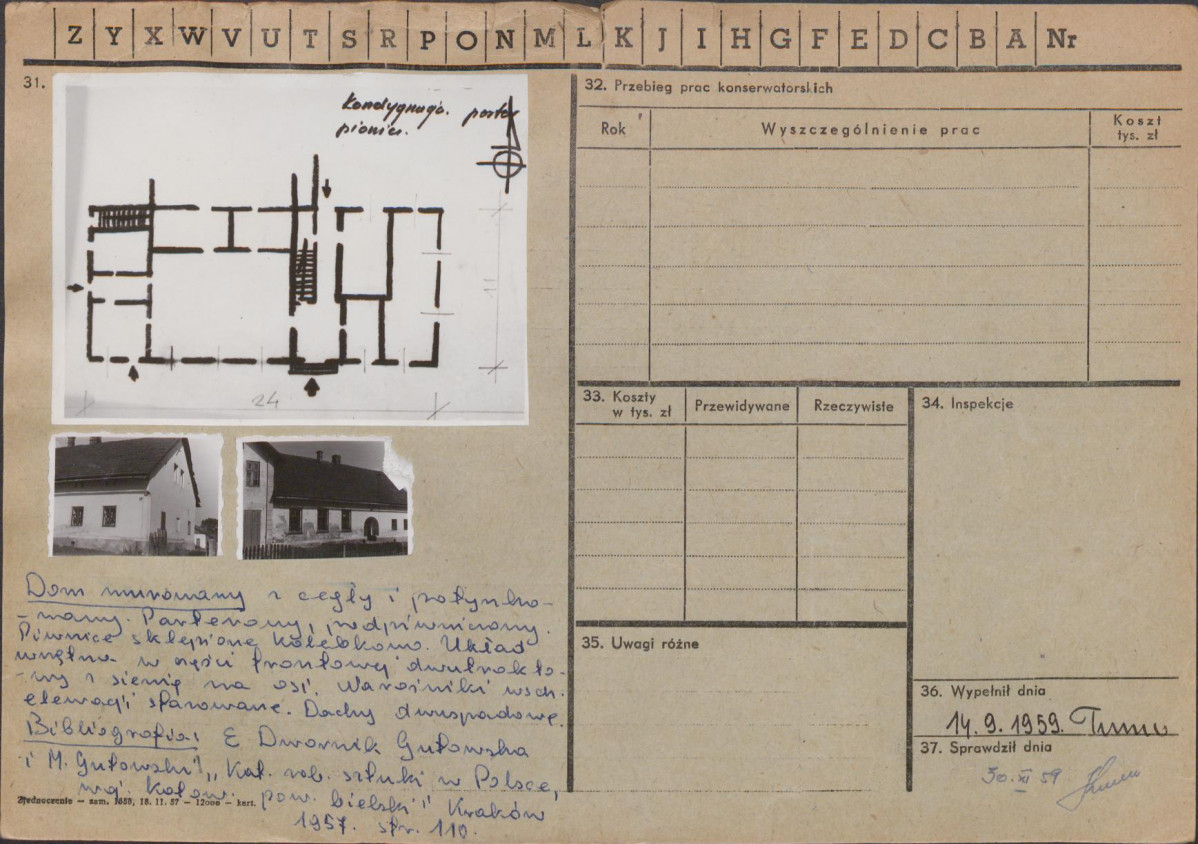 Z Y X W V U T S R P O N M L K J I H G F E D C B A Nr
31.
Kondygnacja. parter
piwnica.
24
11
Dom murowany z cegły i potynko-
-wany. Parterowy, podpiwniczony.
Piwnice sklepione kolebkowo. Układ
wnętrza w części frontowej dwutrakto-
-wy z sienią na osi. Narożniki wsch.
elewacji skarpowane. Dachy dwuspadowe.
Bibliografia: E Dwornik Gutowska
i M. Gutowski "Kat. zab. sztuki w Polsce,
woj. katow. pow. bielski" Kraków
1957. str. 110.
Zjednoczenie — zam. 1658, 18. 11. 57 — 12000 — kart.
32. Przebieg prac konserwatorskich
Rok Wyszczególnienie prac Koszt
tys. zł
33. Koszty
w tys. zł Przewidywane Rzeczywiste
34. Inspekcje
35. Uwagi różne
36. Wypełnił dnia
14. 9. 1959.
37. Sprawdził dnia
30. XI 59